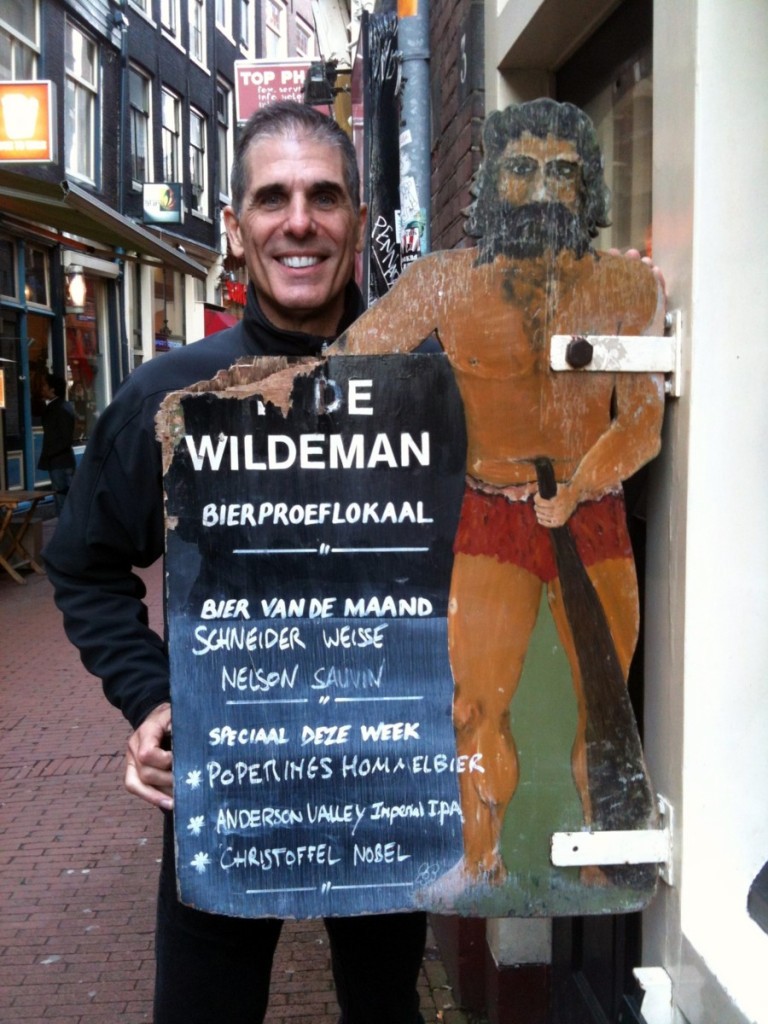 TOP PH
DE
WILDEMAN
BIERPROEFLOKAAL
BIER VAN DE MAAND
SCHNEIDER WEISSE
NELSON SAUVIN
SPECIAAL DEZE WEEK
* POPERINGS HOMMELBIER
* ANDERSON VALLEY Imperial I.P.A
* CHRISTOFFEL NOBEL